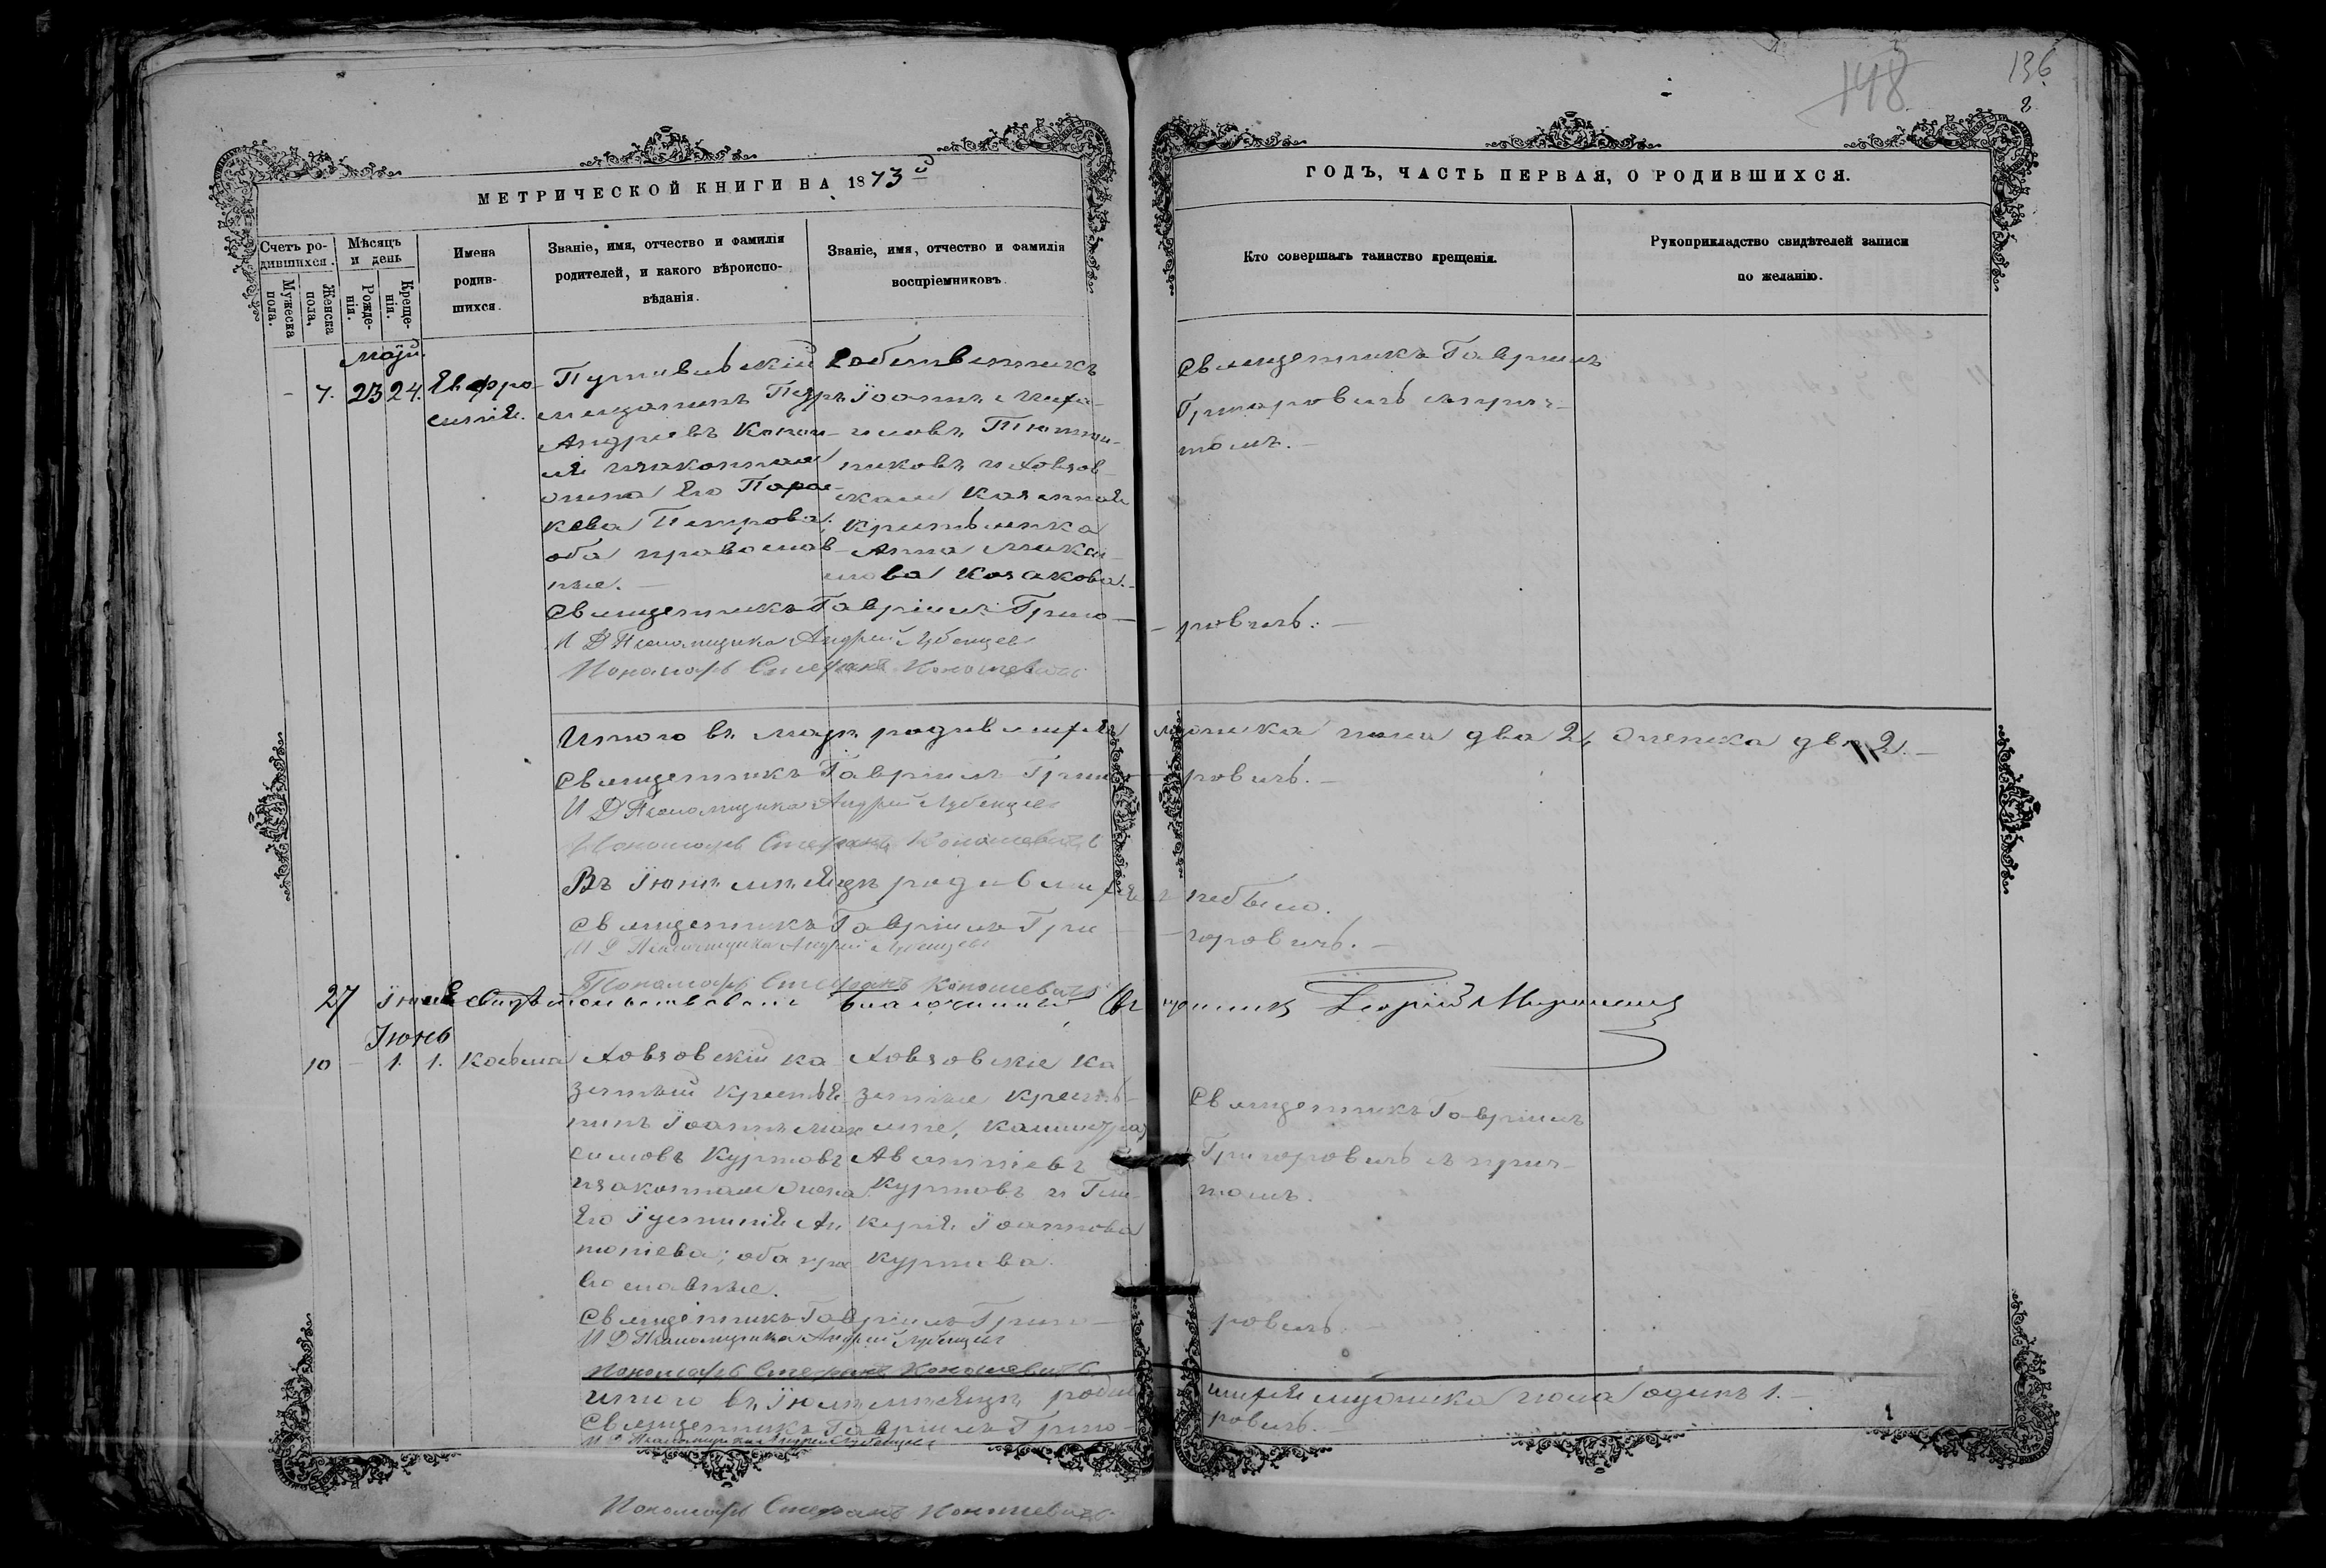 148
136
8
МЕТРИЧЕСКОЙ КНИГИ НА 1873й
ГОДЪ, ЧАСТЬ ПЕРВАЯ, О РОДИВШИХСЯ.
Счетъ ро-
дившихся.
Мужеска
пола.
Женска
пола.
Мѣсяцъ
и день
Рожде-
нія.
Креще-
нія.
Имена
родив-
шихся.
Званіе, имя, отчество и фамилія
родителей, и какого вѣроиспо-
вѣданія.
Званіе, имя, отчество и фамилія
воспріемниковъ.
Кто совершалъ таинство крещенія.
Рукоприкладство свидѣтелей записи
по желанію.
Маій.
- 7. 23 24. Евфро-
синія.
Путивльскій
мещанинъ Петръ
Андреевъ
и законная
жена его Парас-
кева Петрова;
оба православ-
ные.
Собственникъ
Іоаннъ Миха-
иловъ
и Ховзов-
ская Казенная
крестьянка
Анна
Козакова.
Священникъ Гавріилъ
Григоровичъ съ прич-
томъ.
Священникъ Гавріилъ Григо- - ровичъ. -
И Д Псаломщика Андрей Лубенцевъ
Пономарь Стефанъ Кономевичъ
Итого въ маѣ родившихся мужеска пола два 2, женска два 2. -
Священникъ Гавріилъ Григо- ровичъ. -
И Д Псаломщика Андрей Лубенцевъ
Пономарь Стефанъ Кономевичъ
Въ Іюнѣ мѣсяцѣ родившихся небыло.
Священникъ Гавріилъ Гри- - горовичъ. -
И Д Псаломщика Андрей Лубенцевъ
Пономарь Стефанъ Кономевичъ
27 Іюня Свидѣтельствовалъ Благочинный Священникъ Георгій
Іюль
10 - 1. 1. Косьма
Ховзовскій ка-
зенный крестья-
нинъ Іоаннъ Мак-
симовъ Куртовъ
и законная жена
его Іустинія Ан-
тоніева; оба пра-
вославные.
Ховзовскіе ка-
зенные крестья-
не,
Куртовъ и Гли-
керія Іоаннова
Куртова.
Священникъ Гавріилъ
Григоровичъ съ прич-
томъ.
Священникъ Гавріилъ Григо- ровичъ.
И Д Псаломщика Андрей Лубенцевъ
Пономарь Стефанъ Кономевичъ
Итого въ Іюлѣ мѣсяцѣ родившихся мужеска пола одинъ 1. -
Священникъ Гавріилъ Григо- ровичъ. -
И Д Псаломщика Андрей Лубенцевъ
Пономарь Стефанъ Кономевичъ